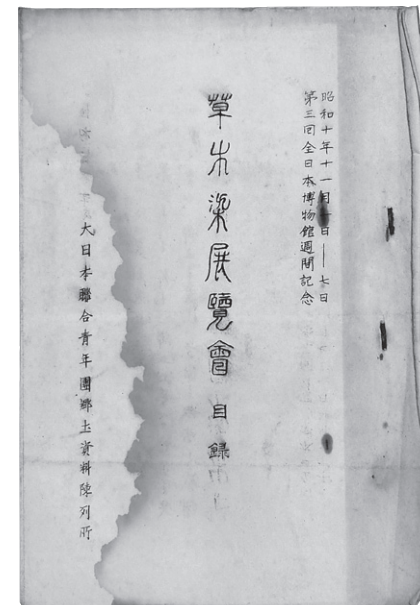 昭和十年十一月一日——七日
第三回全日本博物館週間記念
草木染展覽會目録
大日本聯合青年團郷土資料陳列所